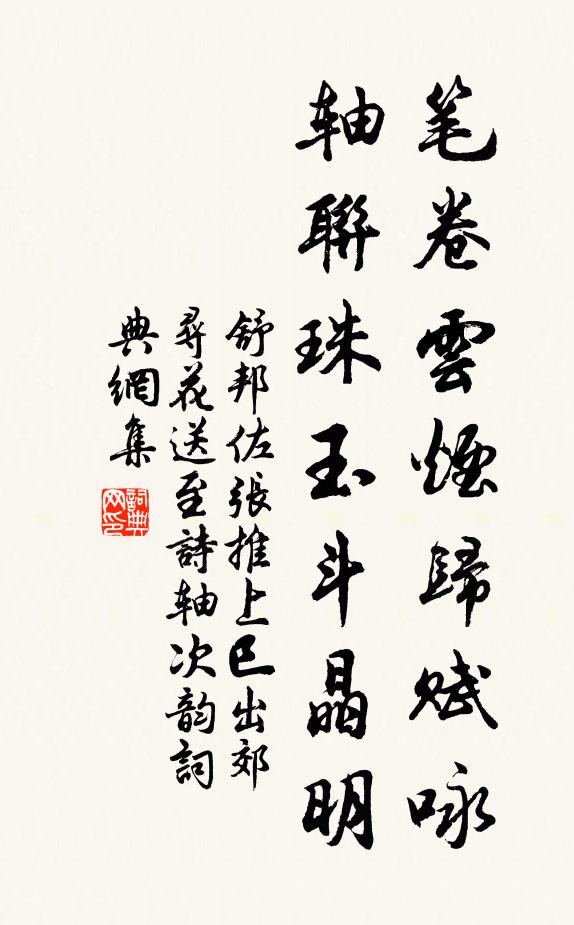 笔卷雲煙歸賦咏
軸聯珠玉斗晶明
舒邦佐張推上巳出郊
尋花送至詩軸次韵詞
典網集
詞典網印